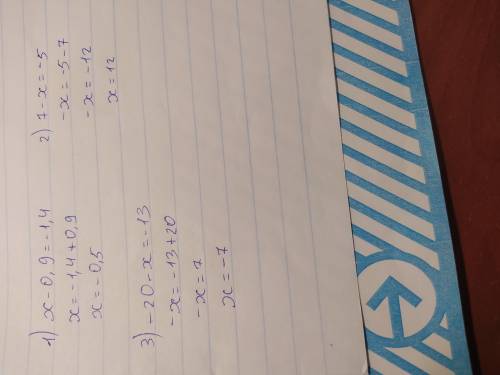 1) x-0,9=-1,4
x=-1,4+0,9
x=-0,5
2) 7-x=-5
-x=-5-7
-x=-12
x=12
3) -20-x=-13
-x=-13+20
-x=7
x=-7